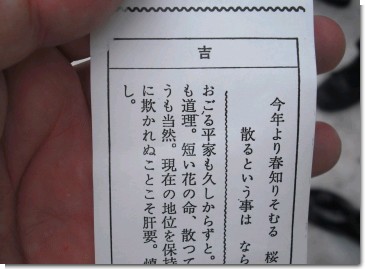 吉
今年より春知りそむる 桜
散るという事は なら
おごる平家も久しからずと。
も道理。短い花の命、散って
うも当然。現在の地位を保持
に欺かれぬことこそ肝要。慎
し。